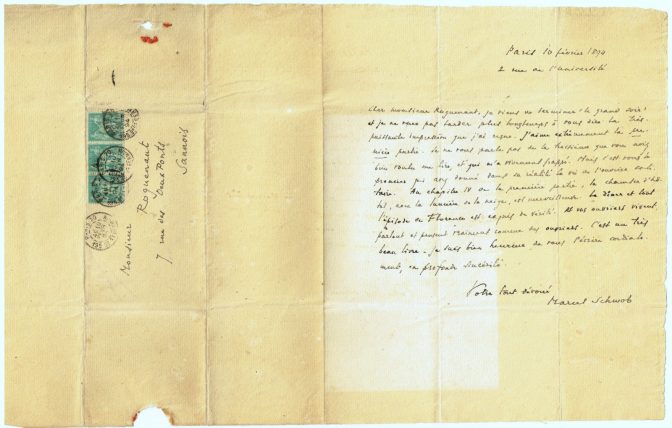 Paris 10 février 1894
2 rue de l'Université
Cher Monsieur Roguenant, je viens de terminer "le grand soir"
et je ne veux pas tarder plus longtemps à vous dire la très
puissante impression que j'ai reçue. J'aime extrêmement la pre-
mière partie. Je ne vous parle pas de la
bien voulu me lire et qui m'a vivement frappé. Mais c'est vous le
premier qui ayez donné dans sa réalité la vie de l'ouvrier
Au chapitre IV de la première partie, la chambre d'hô-
tel, avec la lumière de la neige, est merveilleuse.
l'épisode de Florence est exquis de vérité. Et vos ouvriers vivent,
parlent et pensent vraiment comme des ouvriers. C'est un très
beau livre. Je suis bien heureux de vous l'écrire cordiale-
ment, en profonde sincérité.
Votre tout dévoué
Marcel Schwob
Monsieur Roguenant
7 rue des Deux Ponts
Sannois